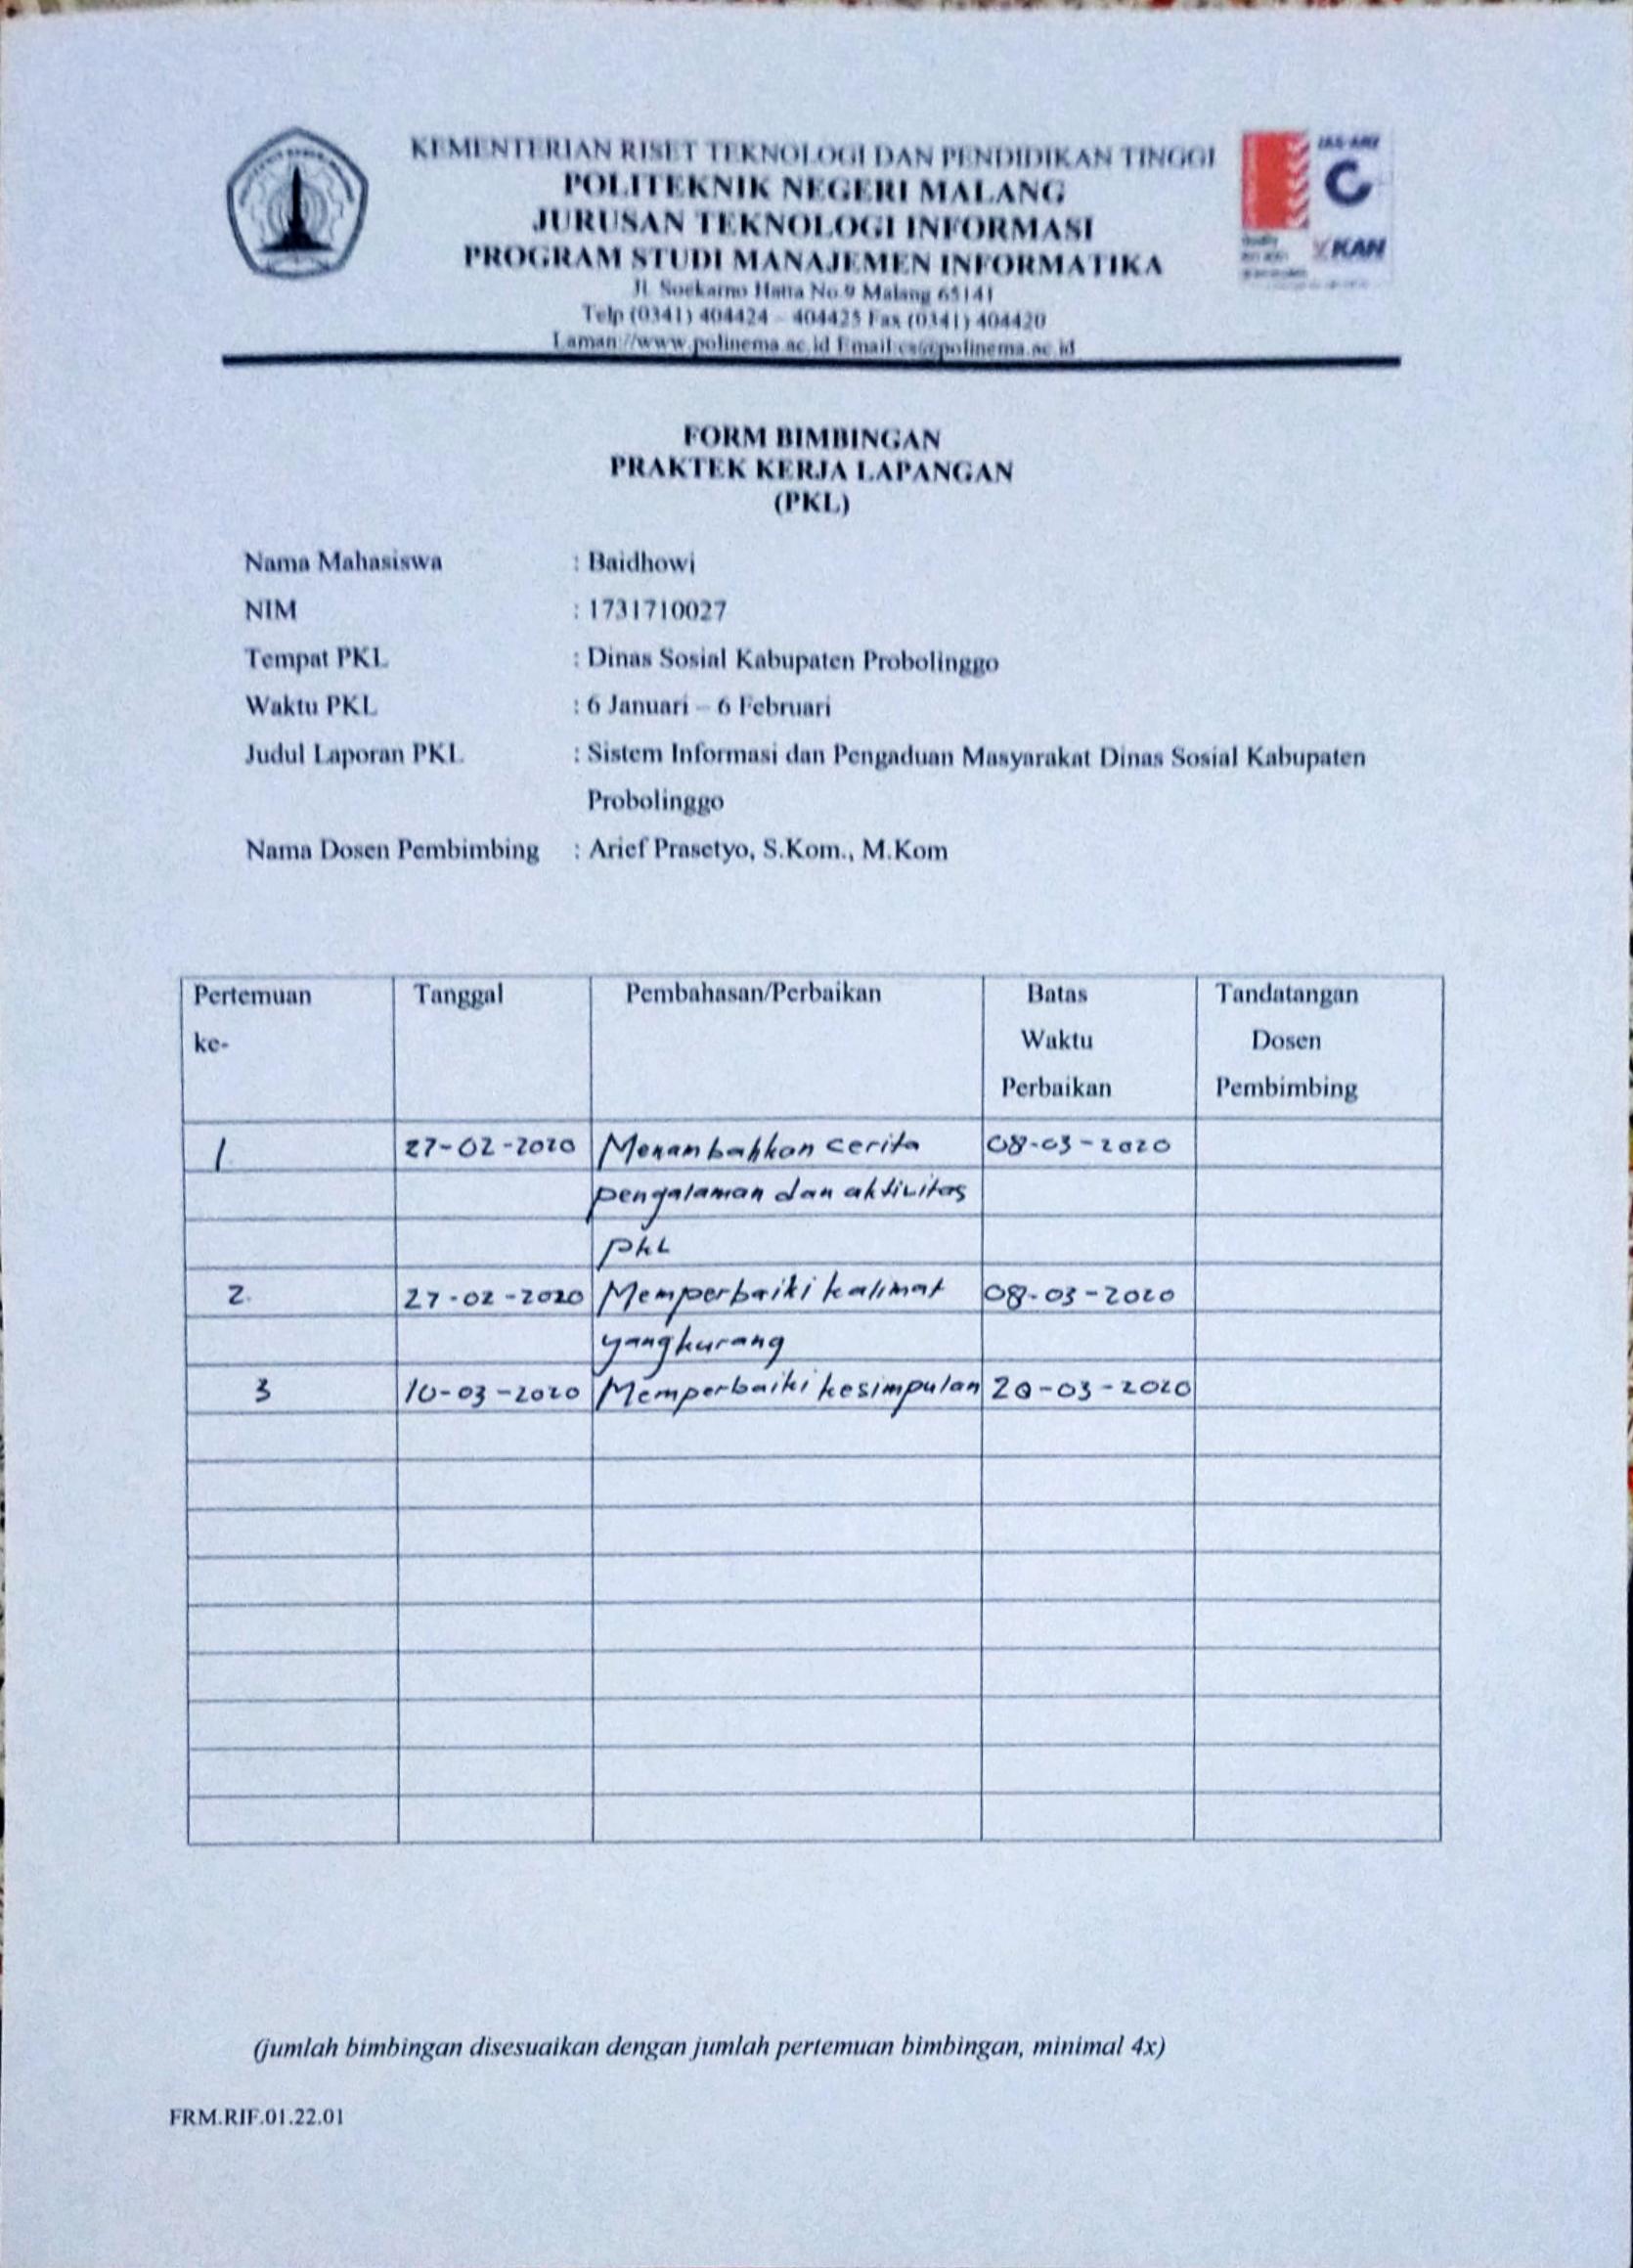 KEMENTERIAN RISET TEKNOLOGI DAN PENDIDIKAN TINGGI
POLITEKNIK NEGERI MALANG
JURUSAN TEKNOLOGI INFORMASI
PROGRAM STUDI MANAJEMEN INFORMATIKA
Jl. Soekarno Hatta No.9 Malang 65141
Telp (0341) 404424 – 404425 Fax (0341) 404420
Laman://www.polinema.ac.id Email:cs@polinema.ac.id
KAN
FORM BIMBINGAN
PRAKTEK KERJA LAPANGAN
(PKL)
Nama Mahasiswa : Baidhowi
NIM : 1731710027
Tempat PKL : Dinas Sosial Kabupaten Probolinggo
Waktu PKL : 6 Januari – 6 Februari
Judul Laporan PKL : Sistem Informasi dan Pengaduan Masyarakat Dinas Sosial Kabupaten
Probolinggo
Nama Dosen Pembimbing : Arief Prasetyo, S.Kom., M.Kom
Pertemuan Tanggal Pembahasan/Perbaikan Batas Tandatangan
ke- Waktu Dosen
Perbaikan Pembimbing
1 27-02-2020 Menambahkan cerita 08-03-2020
pengalaman dan aktivitas
PKL
2. 27-02-2020 Memperbaiki kalimat 08-03-2020
yang kurang
3 10-03-2020 Memperbaiki kesimpulan 20-03-2020
(jumlah bimbingan disesuaikan dengan jumlah pertemuan bimbingan, minimal 4x)
FRM.RIF.01.22.01